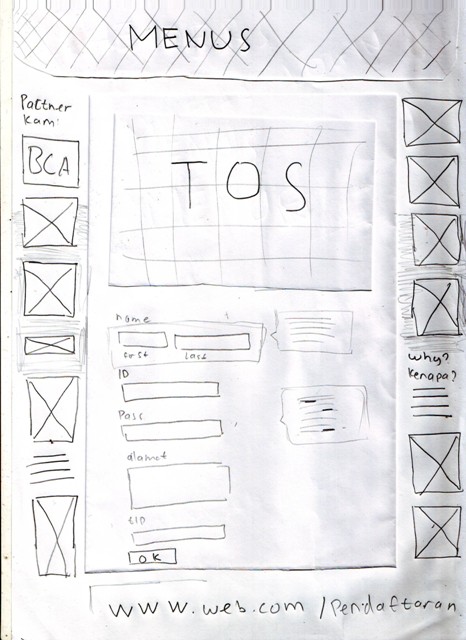 MENUS
Partner
Kami
BCA
TOS
name
first
last
ID
Pass
alamat
ZIP
OK
why?
Kenapa?
www.web.com/Pendaftaran